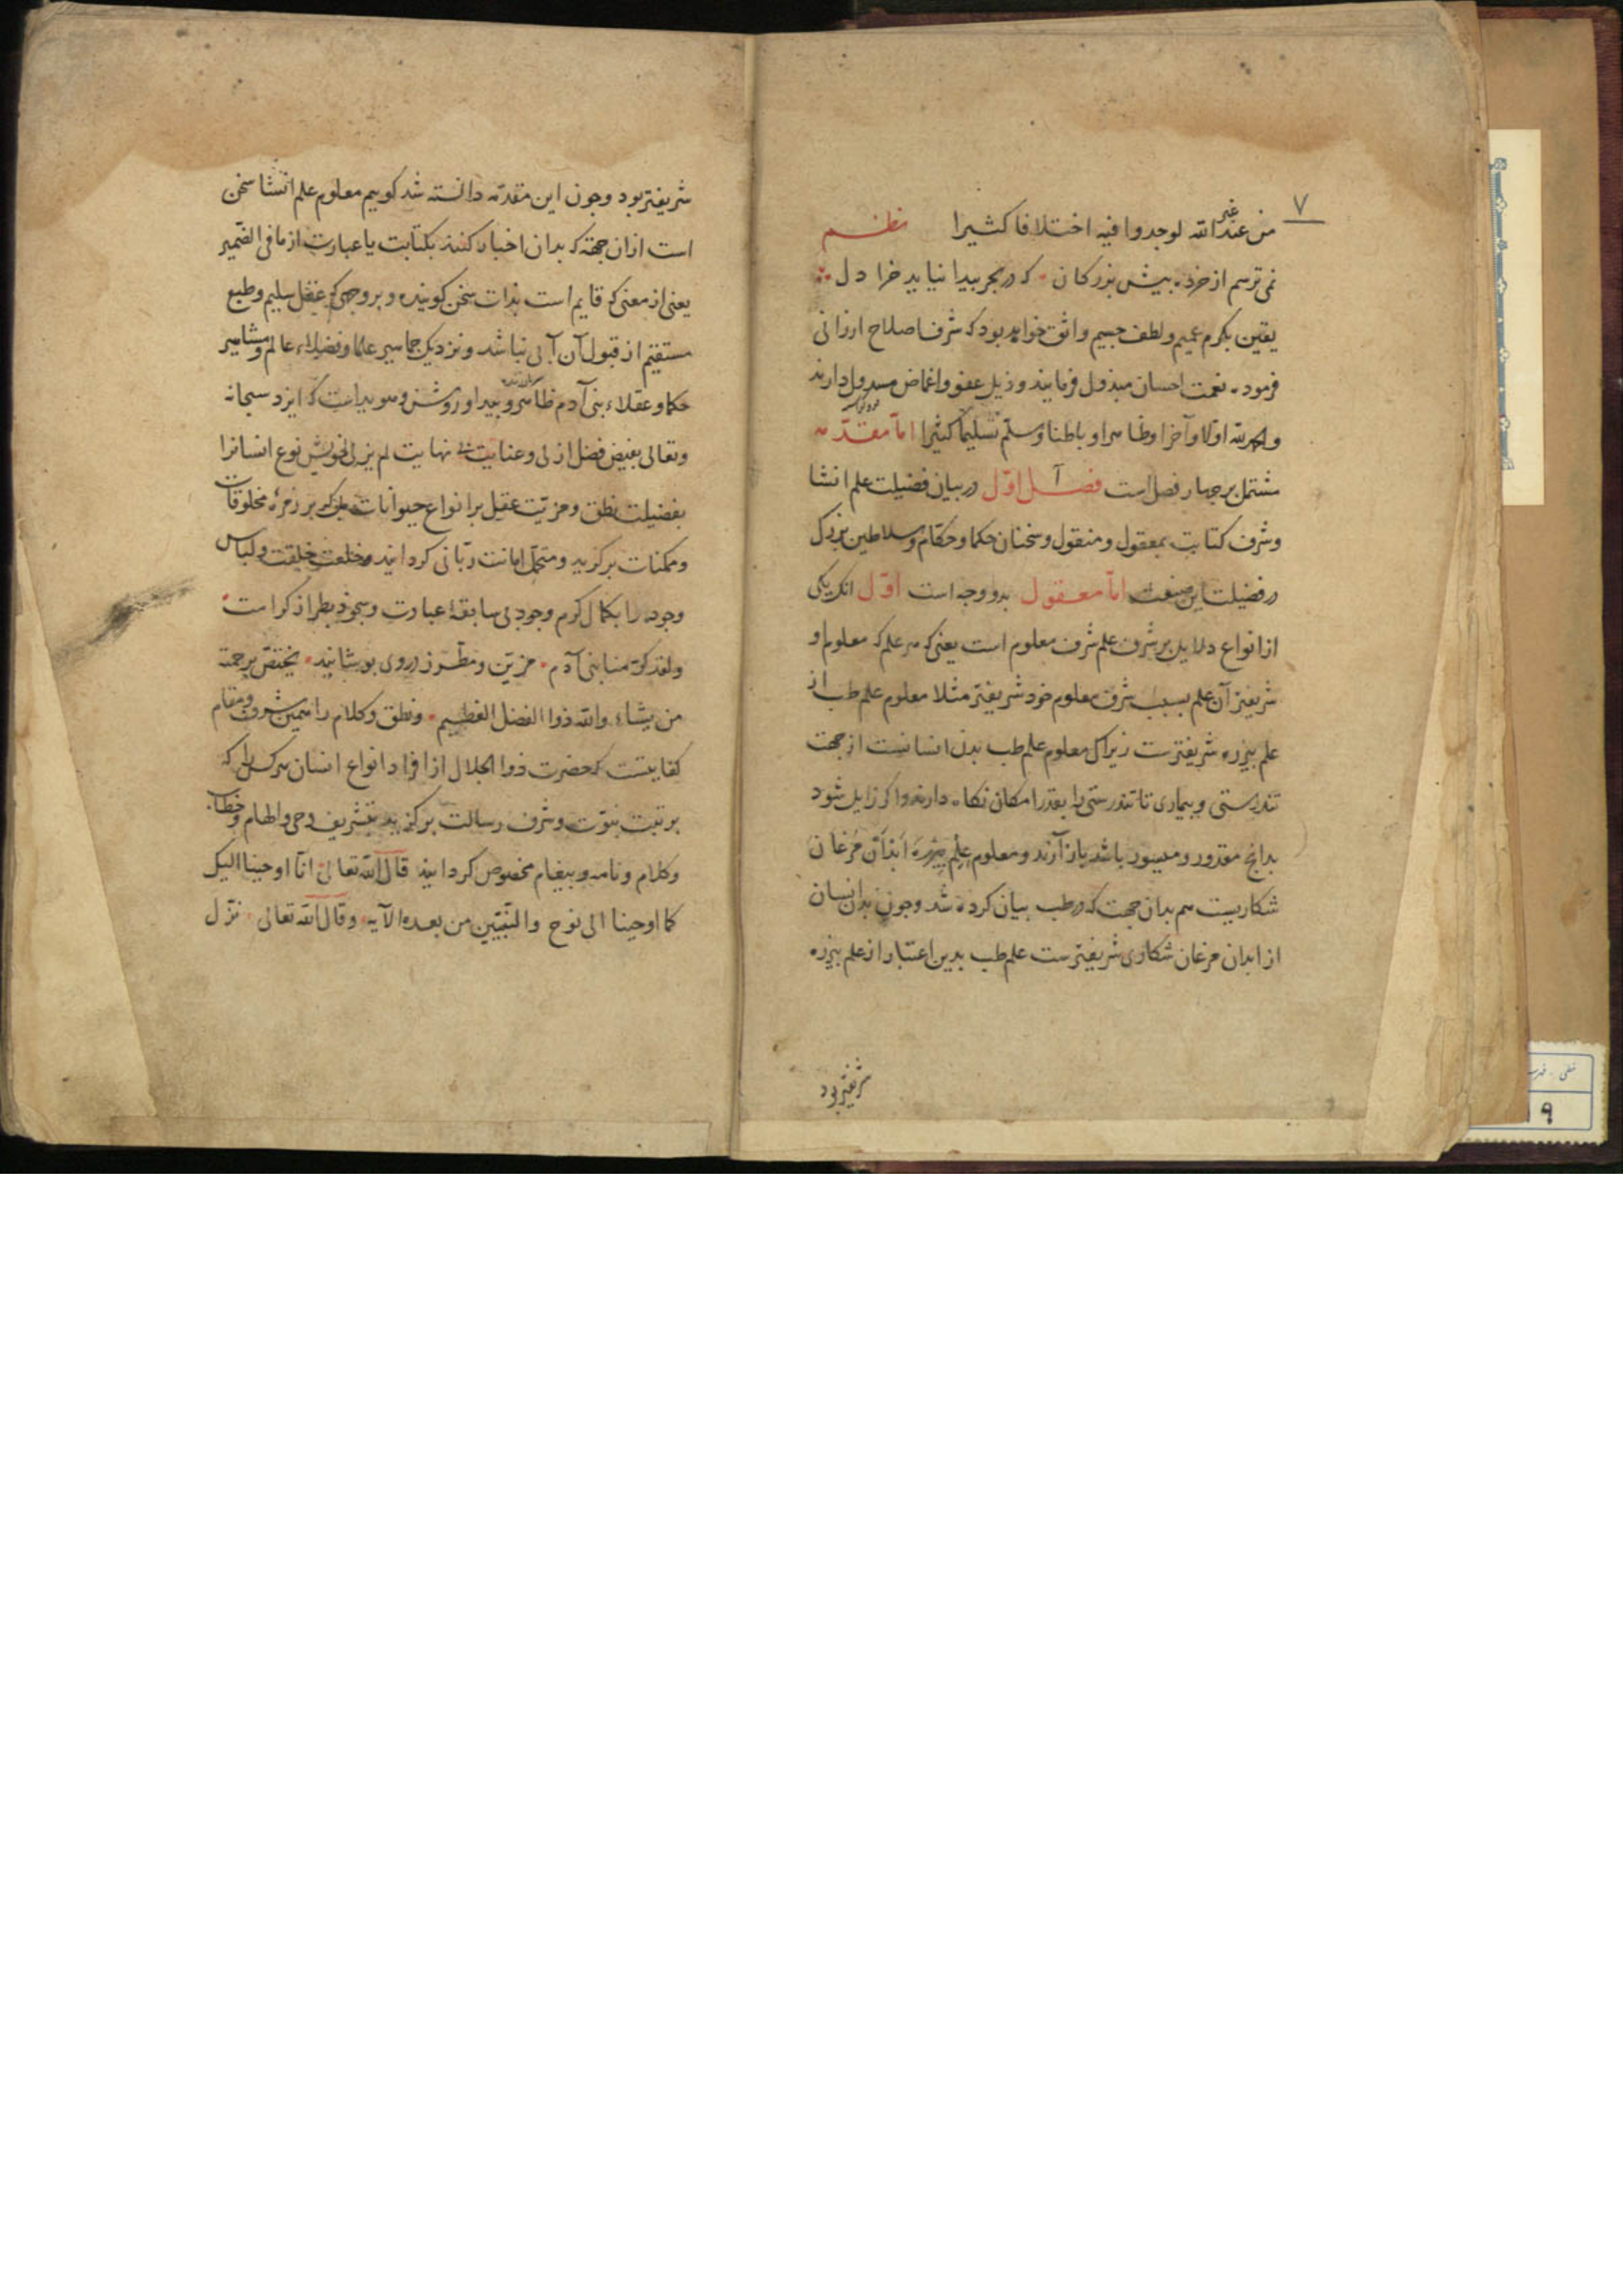 ۷
من عند غیر الله لوجدوا فیه اختلافا کثیرا نظم
نمی ترسم از خرده بیش بزرکان که در بحر بیدا نیاید خرا دل
یقین بکرم عمیم و لطف جسیم واثق خواهد بود که شرف اصلاح ارزانی
فرموده نعمت احسان مبذول فرمایند و ذیل عفو و اغماض مسدول دارند
والحمد لله اولا و آخرا و ظاهرا و باطنا وسلم تسلیما کثیرا اما مقدّمه
مشتمل بر جهار فصل است فصل اوّل در بیان فضیلت علم انشا
و شرف کتابت بمعقول و منقول و سخنان حکما و حکّام و سلاطین بزرک
در فضیلت این صنعت امّا معقول بدو وجه است اوّل انک یکی
از انواع دلایل بر شرف علم شرف معلوم است یعنی که هر علم که معلوم او
شریفتر آن علم بسبب شرف معلوم خود شریفتر مثلا معلوم علم طب از
علم بیزره شریفترست زیراک معلوم علم طب بدن انسانست از جهت
تندرستی و بیماری تا تندرستی را بقدر امکان نکاه دارند و اکر زایل شود
بدانچ مقدور و میسور باشد باز آرند و معلوم علم بیزره ابدان مرغان
شکاریست هم بدان جهت که در طب بیان کرده شد و جون بدن انسان
از ابدان مرغان شکاری شریفترست علم طب بدین اعتبار از علم بیزره
شریفتر بود
شریفتر بود و جون این مقدّمه دانسته شد کوییم معلوم علم انشا سخن
است از ان جهة که بدان اخبار کنند بکتابت یا عبارت از ما فی الضمیر
یعنی از معنی که قایم است بذات سخن کوینده و بر وجهی که عقل سلیم و طبع
مستقیم از قبول آن آبی نباشد و نزدیک جماهیر علما و فضلاء عالم و مشاهیر
حکما و عقلاء بنی آدم ظاهر و بیدا و روشن و هویداست که ایزد سبحانه
وتعالی بفیض فضل ازلی و عنایت بی نهایت لم یزلی خویش نوع انسانرا
بفضیلت نطق و مزیّت عقل بر انواع حیوانات بلکه بر زمرۀ مخلوقات
و ممکنات برکزید و متحمّل امانت ربّانی کردانید و خلعت خلقت و لباس
وجود را بکمال کرم وجود بی سابقۀ عبادت و سجود بطراز کرامت
ولقد کرّمنا بنی آدم مزیّن و مطرّز در وی بوشانید یختصّ برحمته
من یشاء والله ذوا الفضل العظیم و نطق و کلام را همین شرف و مقام
کفایتست که حضرت ذوا الجلال از افراد انواع انسان هر کس را که
برتبت نبوّت و شرف رسالت برکزید بتشریف وحی والهام و خطاب
وکلام و نامه و بیغام مخصوص کردانید قال الله تعالی انّا اوحینا الیک
کما اوحینا الی نوح والنّبیّین من بعده الآیه وقال الله تعالی نزّل
خطی
۹